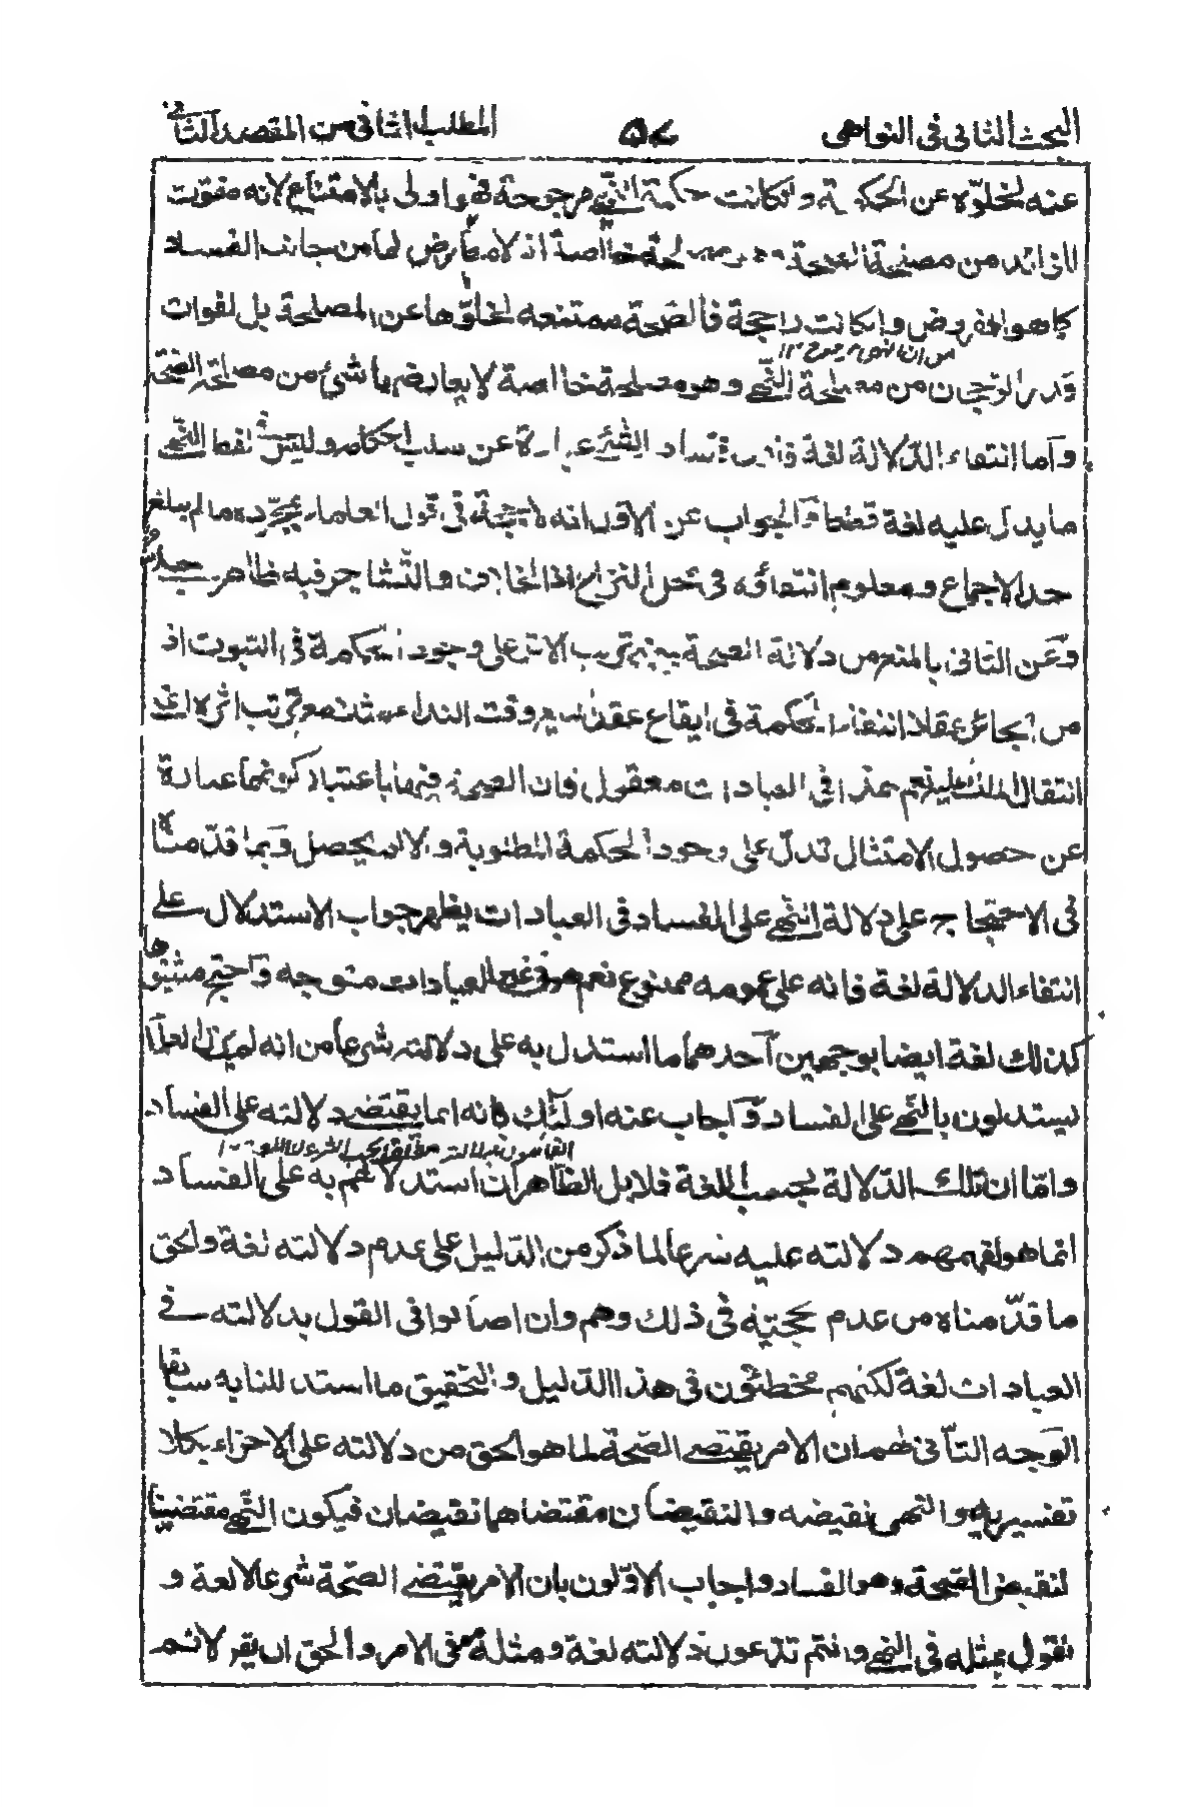 البحث الثانى فى النواهى ٥٧ المطلب الثانى من المقصد الثانى
عنه لخلوّه عن الحكمة وان كانت حكمة النهى مرجوحة فهو اولى بالامتناع لانه مفوّت
للزائد من مصلحة الصحة وهو مصلحة خالصة اذ لا معارض لها من جانب الفساد
كما هو المفروض وان كانت راجحة فالصّحة ممتنعه لخلوّها عن المصلحة بل لفوات
من ان النهى راجح ١٢
قدر الرّجحان من مصلحة النّهى وهو مصلحة خالصة لا يعارضها شئ من مصلحة الصّحة
وآما انتفاء الدّلالة لغة فلان فساد الشّئ عبارة عن سلب احكامه وليس فى لفظ النّهى
ما يدل عليه لغة قطعا وآلجواب عن الاوّل انه لا حجّة فى قول العلماء بمجرّده ما لم يبلغ
حد الاجماع ومعلوم انتفاؤه فى محل النزاع اذ الخلاف والتّشاجر فيه ظاهر جلىّ
وعن الثانى بالمنع من دلالة الصحة بمعنى ترتب الاثر على وجود الحكمة فى الثبوت اذ
من الجائز عقلا انتفاء الحكمة فى ايقاع عقد البيع وقت النداء مثلا مع ترتب اثره اعنى
انتقال الملك عليه نعم هذا فى العبادات معقول فان الصحة فيها باعتبار كونها عبارة
عن حصول الامتثال تدلّ على وجود الحكمة المطلوبة والا لم يحصل وبما قدّمناه
فى الاحتجاج على دلالة النّهى على الفساد فى العبادات يظهر جواب الاستدلال على
انتفاء الدلالة لغة فانه على عمومه ممنوع نعم هو فى غير العبادات متوجه وآحتج مثبتوها
كذلك لغة ايضا بوجهين آحدهما ما استدل به على دلالته شرعا من انه لم يزل العلماء
يستدلون بالنّهى على الفساد وآجاب عنه اولئك بانه انما يقتضى دلالته على الفساد
القائلون بدلالته
وامّا ان تلك الدّلالة بحسب اللغة فلا بل الظاهر ان استدلالهم به على الفساد
انما هو لفهمهم دلالته عليه شرعا لما ذكر من الدّليل على عدم دلالته لغة والحق
ما قدّمناه من عدم حجّيّته فى ذلك وهم وان اصابوا فى القول بدلالته فى
العبادات لغة لكنهم مخطئون فى هذا الدّليل والتحقيق ما استدللنا به سابقا
الوجه الثانى لهم ان الامر يقتضى الصّحة لما هو الحق من دلالته على الاجزاء بكلا
تفسيريه والنهى نقيضه والنقيضان مقتضاهما نقيضان فيكون النّهى مقتضيا
لنقيض الصّحة وهو الفساد واجاب الاوّلون بان الامر يقتضى الصّحة شرعا لا لغة و
نقول بمثله فى النّهى وانتم تدّعون دلالته لغة ومثله فى الامر والحق ان يقر لا نسلم